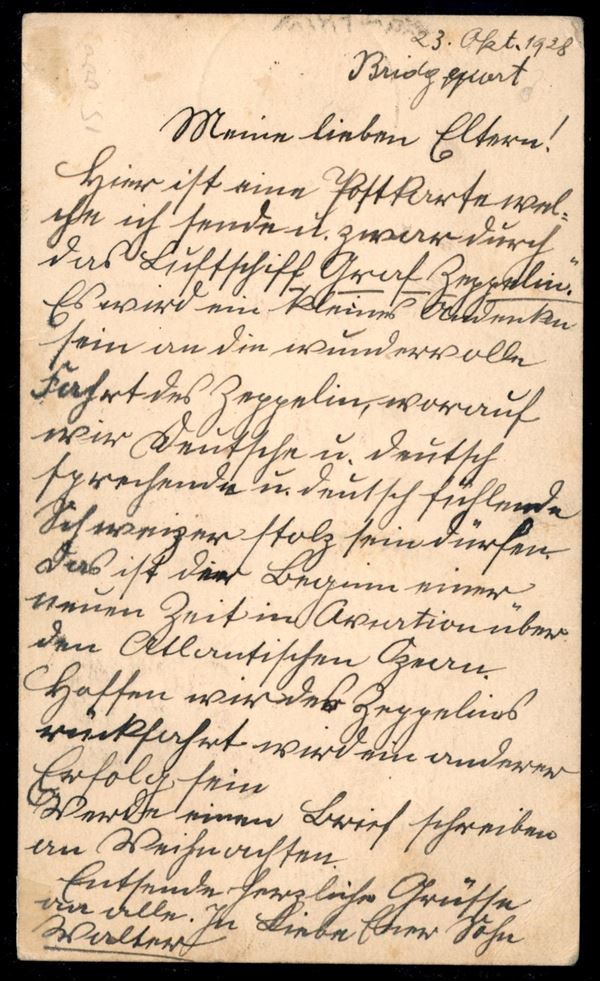 23. Okt. 1928
Bridgeport
Meine lieben Eltern!
Hier ist eine Postkarte wel-
che ich sende u. zwar durch
das Luftschiff Graf Zeppelin."
Es wird ein kleines Andenken
sein an die wundervolle
Fahrt des Zeppelin, worauf
wir Deutsche u. deutsch
sprechende u. deutsch fühlende
Schweizer stolz sein dürfen.
Das ist der Beginn einer
neuen Zeit in Aviation über
den Atlantischen Ozean.
Hoffen wir des Zeppelins
rückfahrt wird ein anderer
Erfolg sein
Werde einen Brief schreiben
an Weihnachten.
Entsende herzliche Grüsse
an alle. In Liebe Euer Sohn
Walter